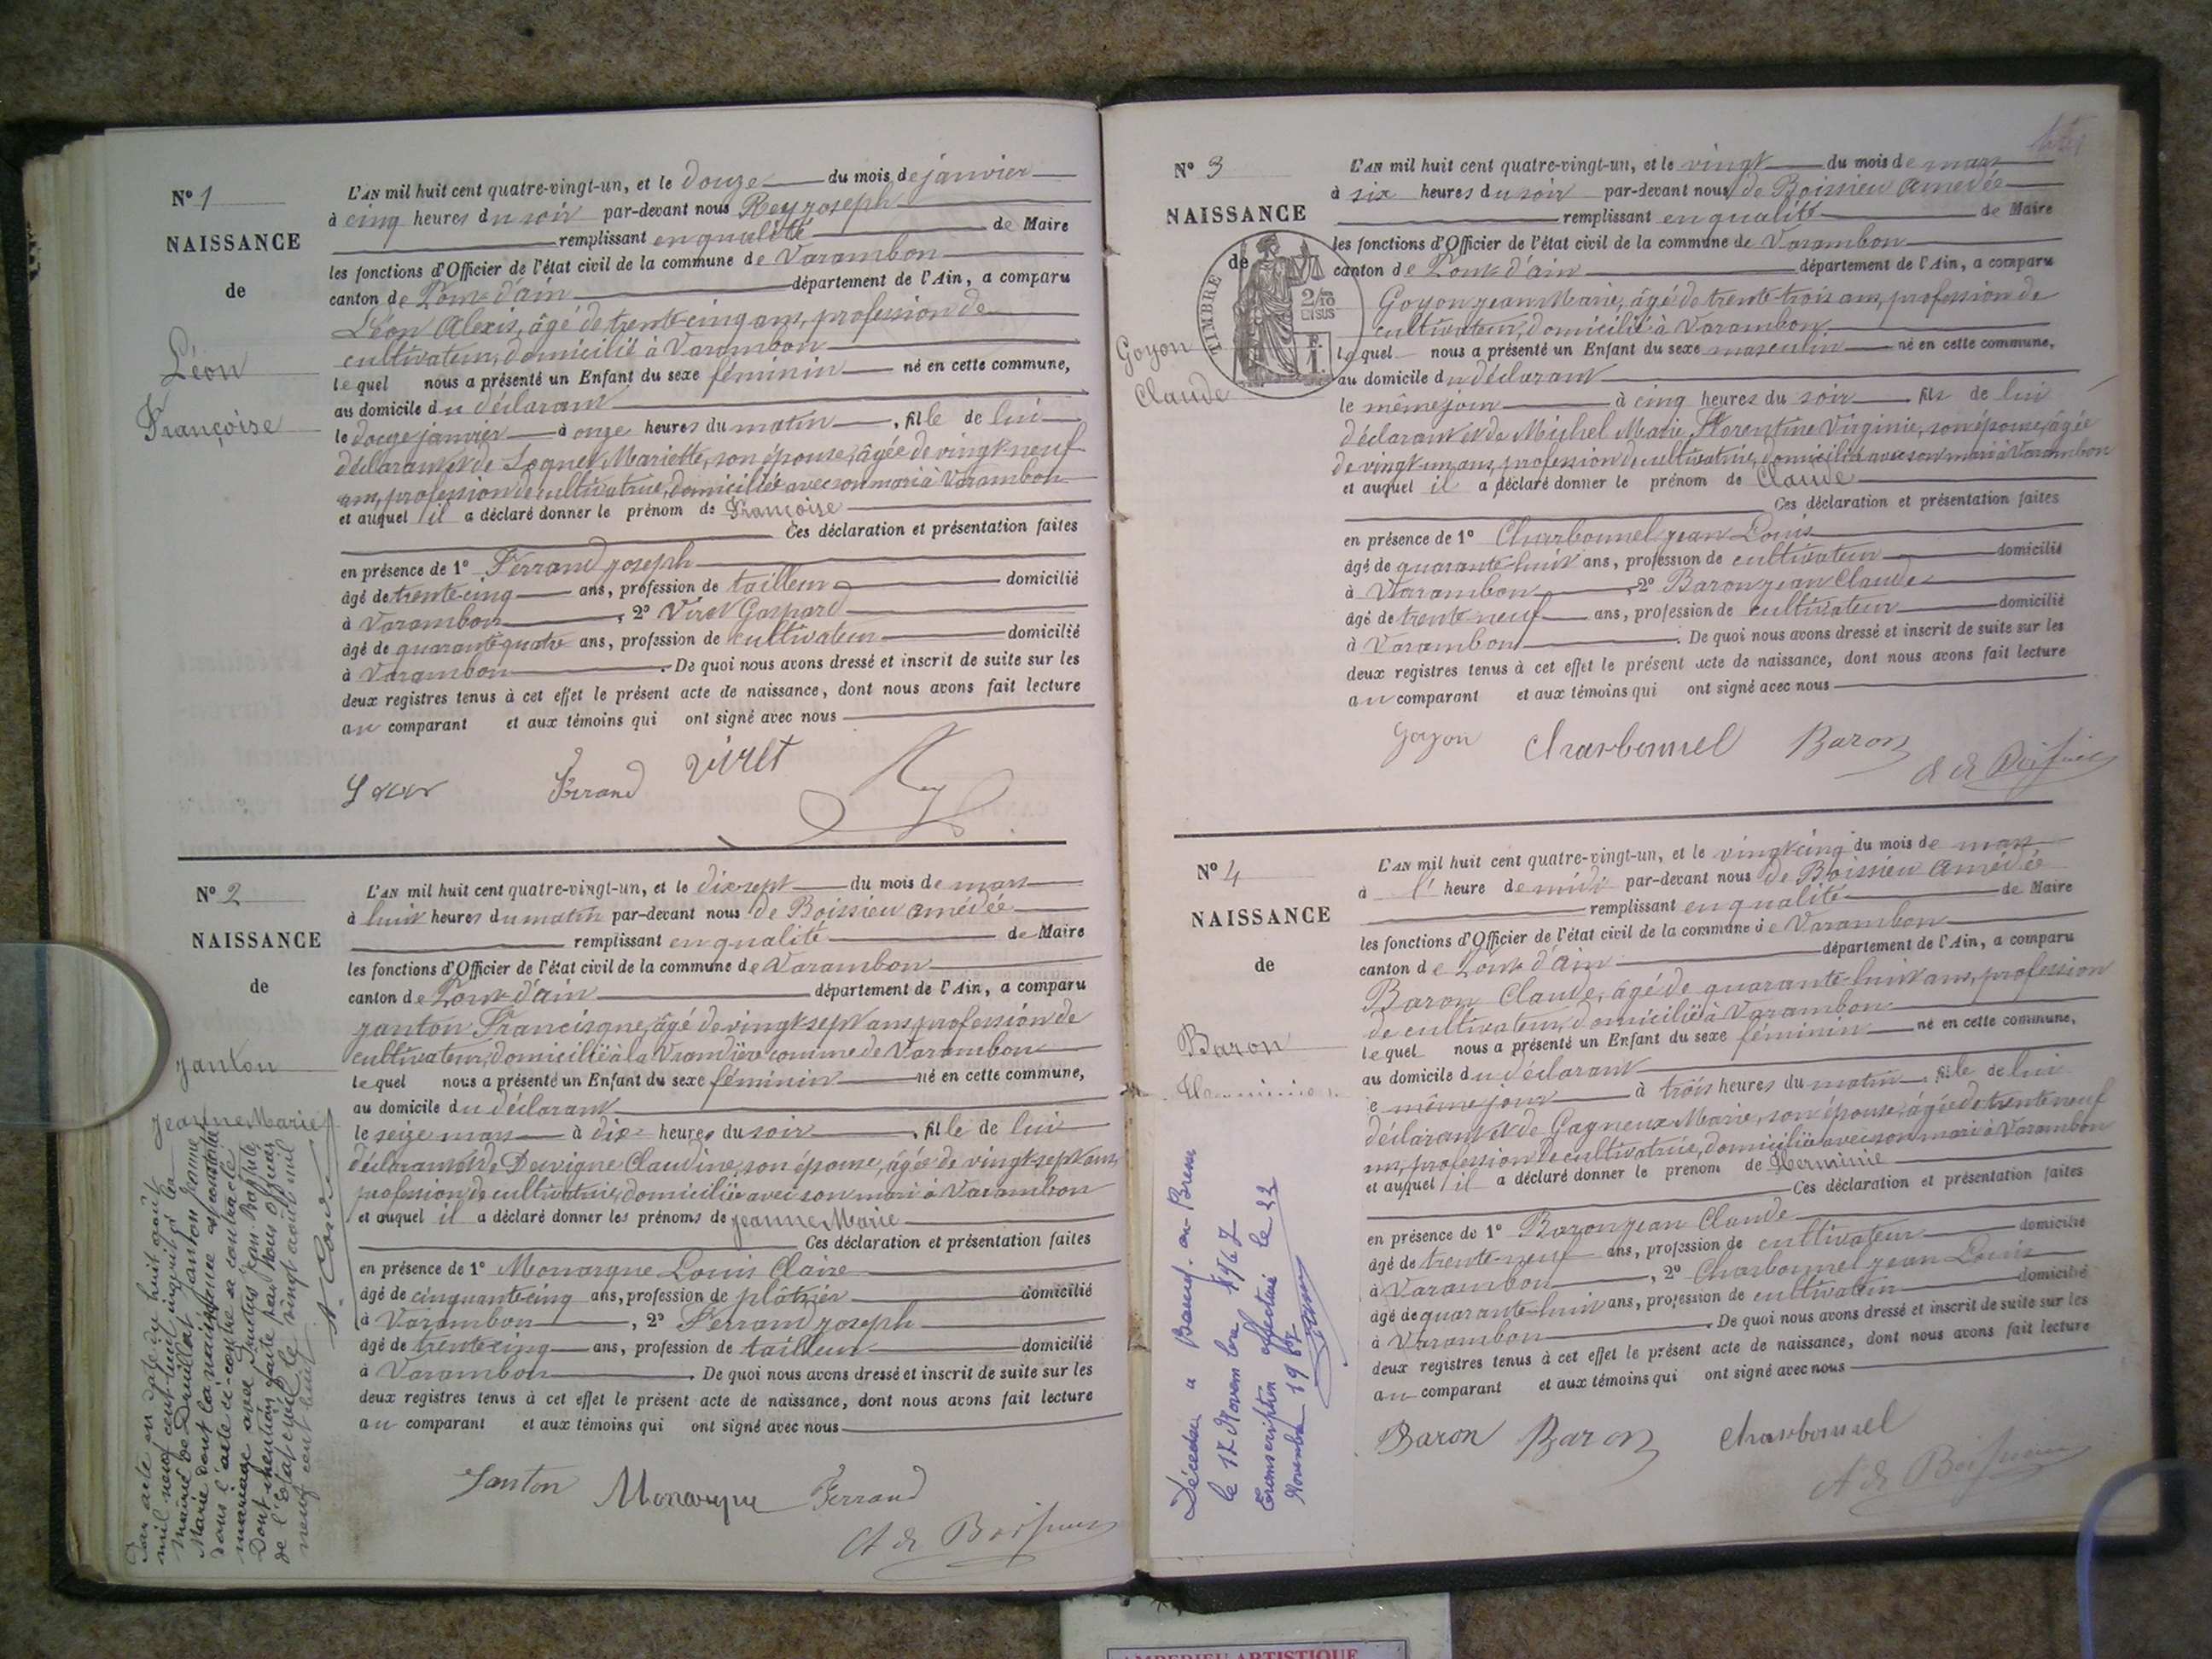 N° 1
NAISSANCE
de
Léon
Françoise
L'AN mil huit cent quatre-vingt-un, et le douze du mois de janvier
à cinq heures du soir par-devant nous Rey joseph
remplissant en qualité de Maire
les fonctions d'Officier de l'état civil de la commune de Varambon
canton de Pont d'ain département de l'Ain, a comparu
Léon Alexis, âgé de trente-cinq ans, profession de
cultivateur, domicilié à Varambon
lequel nous a présenté un Enfant du sexe féminin né en cette commune,
au domicile du déclarant
le douze janvier à onze heures du matin, fille de lui
déclarant et de Mariette, son épouse, âgée de vingt-neuf
ans, profession de cultivatrice, domiciliée avec son mari à Varambon
et auquel il a déclaré donner le prénom de Françoise
Ces déclaration et présentation faites
en présence de 1° Ferrand joseph
âgé de trente-cinq ans, profession de tailleur domicilié
à Varambon, 2° Viret Gaspard
âgé de quarante-quatre ans, profession de cultivateur domicilié
à Varambon. De quoi nous avons dressé et inscrit de suite sur les
deux registres tenus à cet effet le présent acte de naissance, dont nous avons fait lecture
au comparant et aux témoins qui ont signé avec nous
Ferrand viret Rey
N° 2
NAISSANCE
de
janton
jeanne Marie
L'AN mil huit cent quatre-vingt-un, et le dix-sept du mois de mars
à huit heures du matin par-devant nous de Boissieu amédée
remplissant en qualité de Maire
les fonctions d'Officier de l'état civil de la commune de Varambon
canton de Pont d'ain département de l'Ain, a comparu
janton Francisque, âgé de vingt-sept ans, profession de
cultivateur, domicilié à la comme de Varambon
lequel nous a présenté un Enfant du sexe féminin né en cette commune,
au domicile du déclarant
le seize mars à dix heures du soir, fille de lui
déclarant et de Claudine, son épouse, âgée de vingt-sept ans,
profession de cultivatrice, domiciliée avec son mari à Varambon
et auquel il a déclaré donner les prénoms de jeanne Marie
Ces déclaration et présentation faites
en présence de 1° Monarque Louis Claire
âgé de cinquante-cinq ans, profession de plâtrier domicilié
à Varambon, 2° Ferrand joseph
âgé de trente-cinq ans, profession de tailleur domicilié
à Varambon. De quoi nous avons dressé et inscrit de suite sur les
deux registres tenus à cet effet le présent acte de naissance, dont nous avons fait lecture
au comparant et aux témoins qui ont signé avec nous
Janton Monarque Ferrand
A de Boissieu
Par acte en date du huit août
mil neuf cent
mairie de Druillat janton jeanne
Marie dont la naissance est constatée
dans l'acte ci-contre a contracté
mariage avec jean Baptiste
Dont mention faite par Nous officier
de l'Etat civil le vingt août mil
neuf cent
N° 3
NAISSANCE
de
Goyon
Claude
TIMBRE
2/10
EN SUS
L'AN mil huit cent quatre-vingt-un, et le vingt du mois de mars
à six heures du soir par-devant nous de Boissieu amédée
remplissant en qualité de Maire
les fonctions d'Officier de l'état civil de la commune de Varambon
canton de Pont d'ain département de l'Ain, a comparu
Goyon jean Marie, âgé de trente-trois ans, profession de
cultivateur, domicilié à Varambon
lequel nous a présenté un Enfant du sexe masculin né en cette commune,
au domicile du déclarant
le même jour à cinq heures du soir fils de lui
déclarant et de Michel Marie Florentine Virginie, son épouse, âgée
de vingt-un ans, profession de cultivatrice, domiciliée avec son mari à Varambon
et auquel il a déclaré donner le prénom de Claude
Ces déclaration et présentation faites
en présence de 1° Charbonnel jean Louis
âgé de quarante-huit ans, profession de cultivateur domicilié
à Varambon, 2° Baron jean Claude
âgé de trente-neuf ans, profession de cultivateur domicilié
à Varambon. De quoi nous avons dressé et inscrit de suite sur les
deux registres tenus à cet effet le présent acte de naissance, dont nous avons fait lecture
au comparant et aux témoins qui ont signé avec nous
Goyon Charbonnel Baron
A de Boissieu
N° 4
NAISSANCE
de
Baron
Herminie
L'AN mil huit cent quatre-vingt-un, et le vingt-cinq du mois de mars
à l' heure de midi par-devant nous de Boissieu amédée
remplissant en qualité de Maire
les fonctions d'Officier de l'état civil de la commune de Varambon
canton de Pont d'ain département de l'Ain, a comparu
Baron Claude, âgé de quarante-huit ans, profession
de cultivateur, domicilié à Varambon
lequel nous a présenté un Enfant du sexe féminin né en cette commune,
au domicile du déclarant
le même jour à trois heures du matin, fille de lui
déclarant et de Gagneux Marie, son épouse, âgée de trente-neuf
ans, profession de cultivatrice, domiciliée avec son mari à Varambon
et auquel il a déclaré donner le prénom de Herminie
Ces déclaration et présentation faites
en présence de 1° Baron jean Claude
âgé de trente-neuf ans, profession de cultivateur domicilié
à Varambon, 2° Charbonnel jean Louis
âgé de quarante-huit ans, profession de cultivateur domicilié
à Varambon. De quoi nous avons dressé et inscrit de suite sur les
deux registres tenus à cet effet le présent acte de naissance, dont nous avons fait lecture
au comparant et aux témoins qui ont signé avec nous
Baron Baron Charbonnel
A de Boissieu
Décédée a Bourg-en-Bresse
le 17 Novembre 1967
Transcription effectuée le 23
Novembre 1967
AMPERIEU ARTISTIQUE